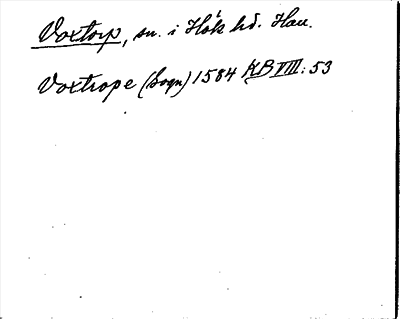 Voxtorp, sn. i Hök hd. Hall.
Voxtrope (sogn) 1584 KB VIII: 53